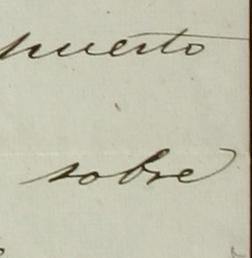 puesto
sobre